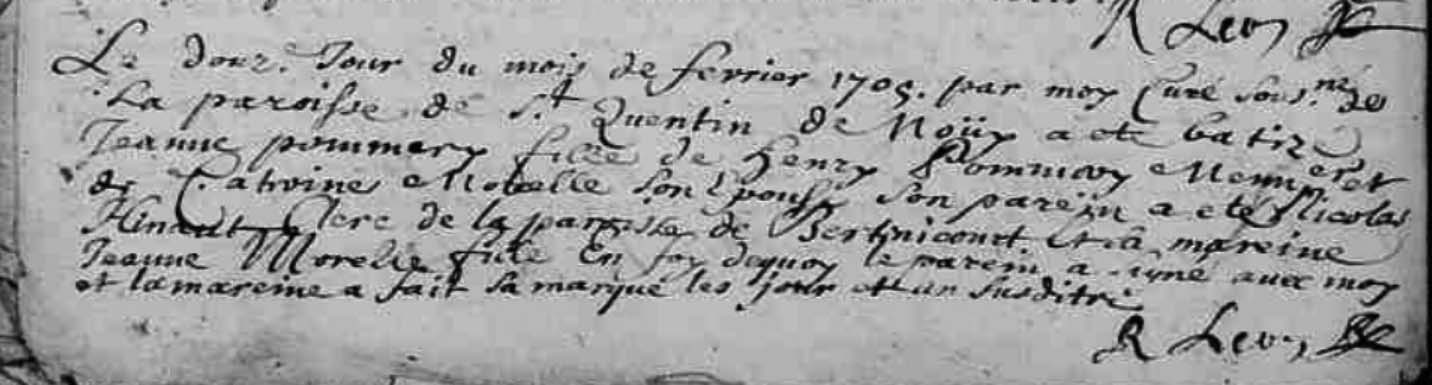 R Leon
Le douz. Jour du mois de fevrier 1705. par moy Curé sous.né de
La paroisse de St Quentin de Noüy a eté batizé
Jeanne pommery fille de henry Pommery Meunier et
de Catroine Morelle son Epouse son parein a eté Nicolas
Hinaut Clerc de la paroisse de Bertinicourt Et la mareine
Jeanne Morelle fille En foy dequoy le parein a siné avec moy
et la mareine a fait sa marque les jour et an susditte
R Leon